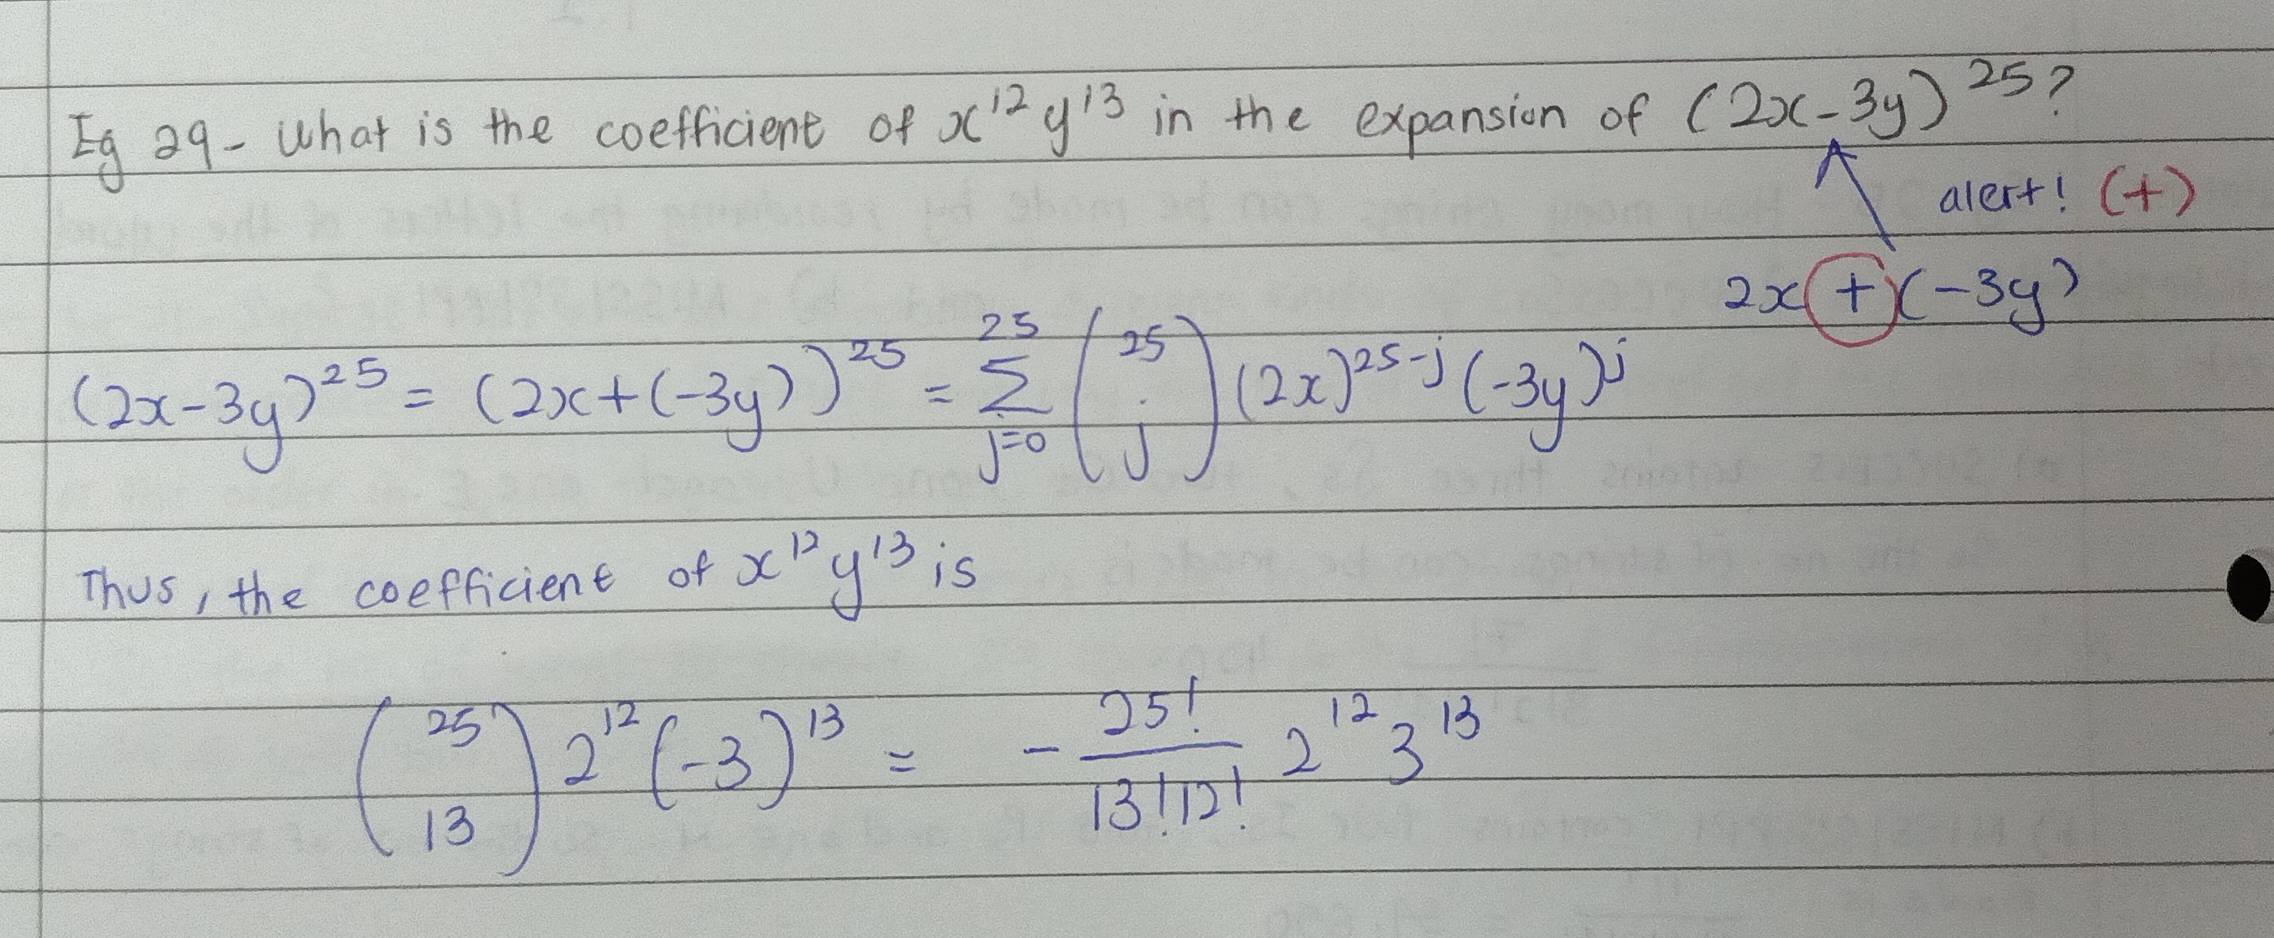 Eg 29 - What is the coefficient of x¹² y¹³ in the expansion of (2x-3y)²⁵?
alert! (+)
2x + (-3y)
(2x-3y)²⁵ = (2x+(-3y))²⁵ = Σ_{j=0}^{25} (25 j) (2x)^{25-j} (-3y)^j
Thus, the coefficient of x¹² y¹³ is
(25 13) 2¹² (-3)¹³ = - 25!/13!12! 2¹² 3¹³